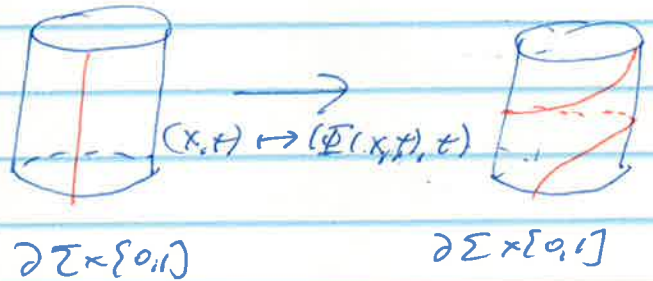 (x,t) ↦ (Φ(x,t), t)
∂Σ×[0,1] ∂Σ×[0,1]